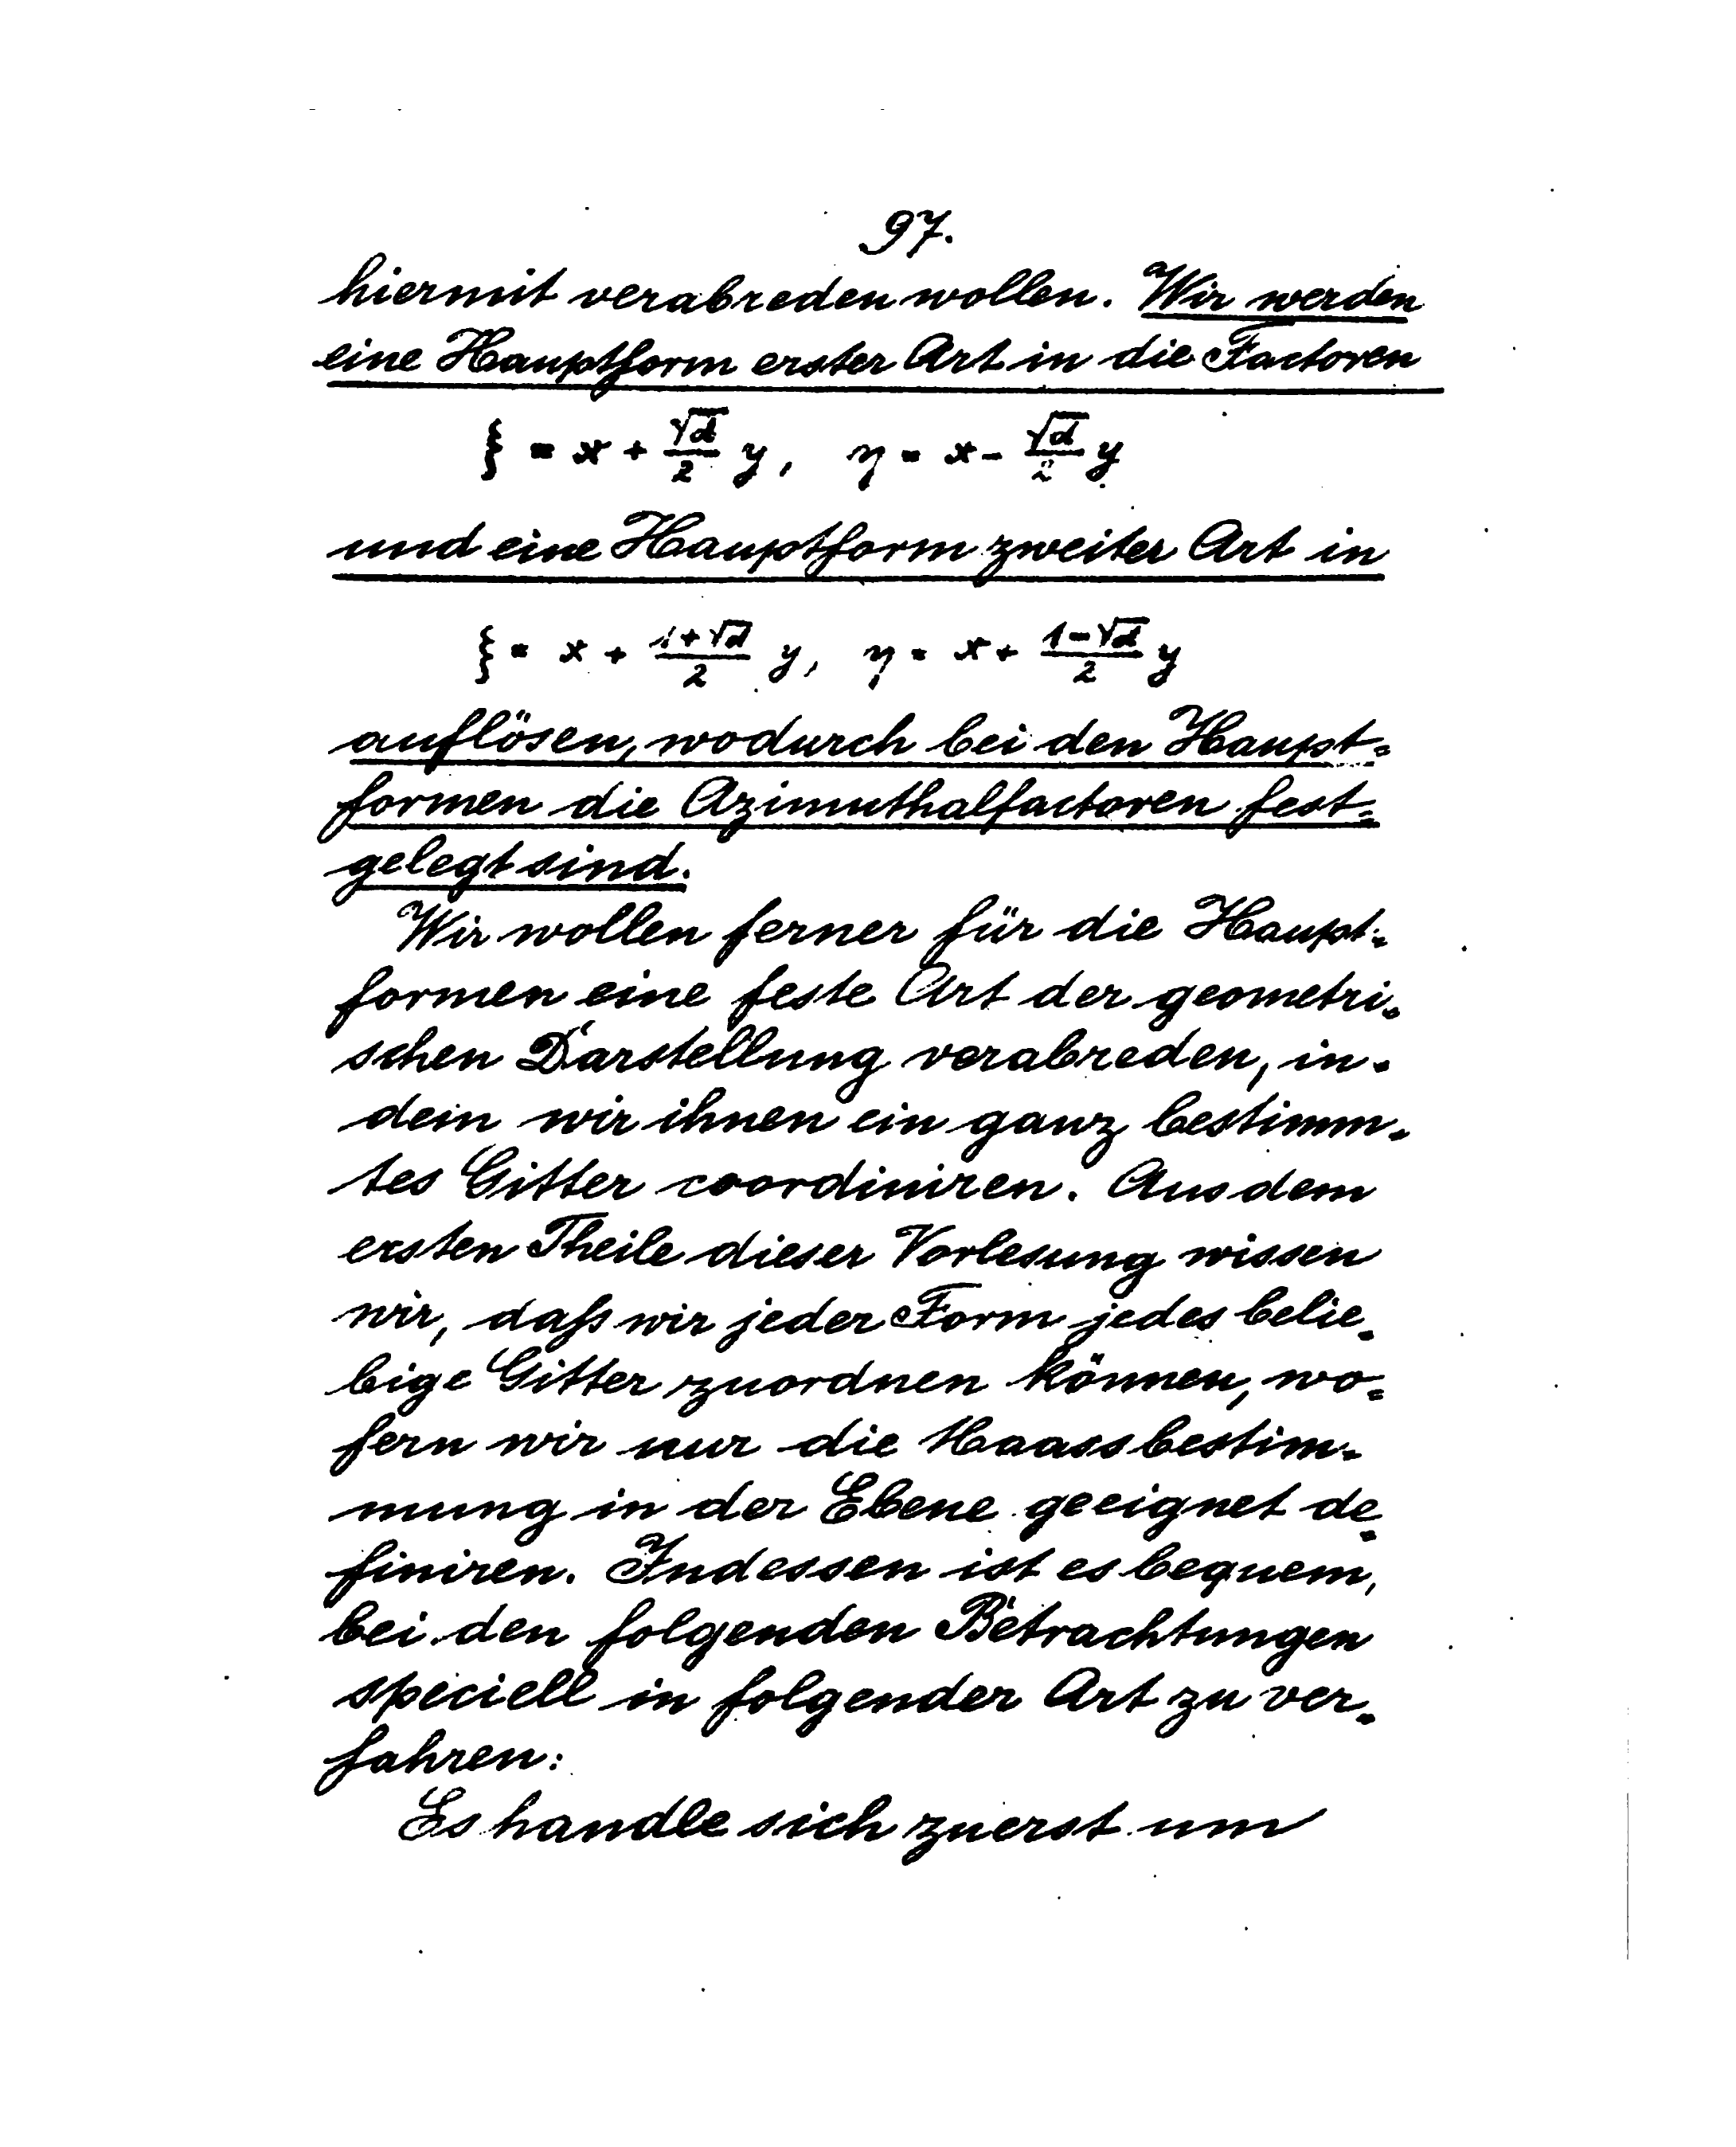 97.
hiermit verabreden wollen. Wir werden
eine Hauptform erster Art in die Factoren
ξ = x + √d/2 y, η = x - √d/2 y
und eine Hauptform zweiter Art in
ξ = x + 1+√d/2 y, η = x + 1-√d/2 y
auflösen, wodurch bei den Haupt=
formen die Azimuthalfactoren fest=
gelegt sind.
Wir wollen ferner für die Haupt=
formen eine feste Art der geometri=
schen Darstellung verabreden, in=
dem wir ihnen ein ganz bestimm=
tes Gitter coordiniren. Aus dem
ersten Theile dieser Vorlesung wissen
wir, daß wir jeder Form jedes belie=
bige Gitter zuordnen können, wo=
fern wir nur die Maassbestim=
mung in der Ebene geeignet de=
finiren. Indessen ist es bequem,
bei den folgenden Betrachtungen
speciell in folgender Art zu ver=
fahren:
Es handle sich zuerst um